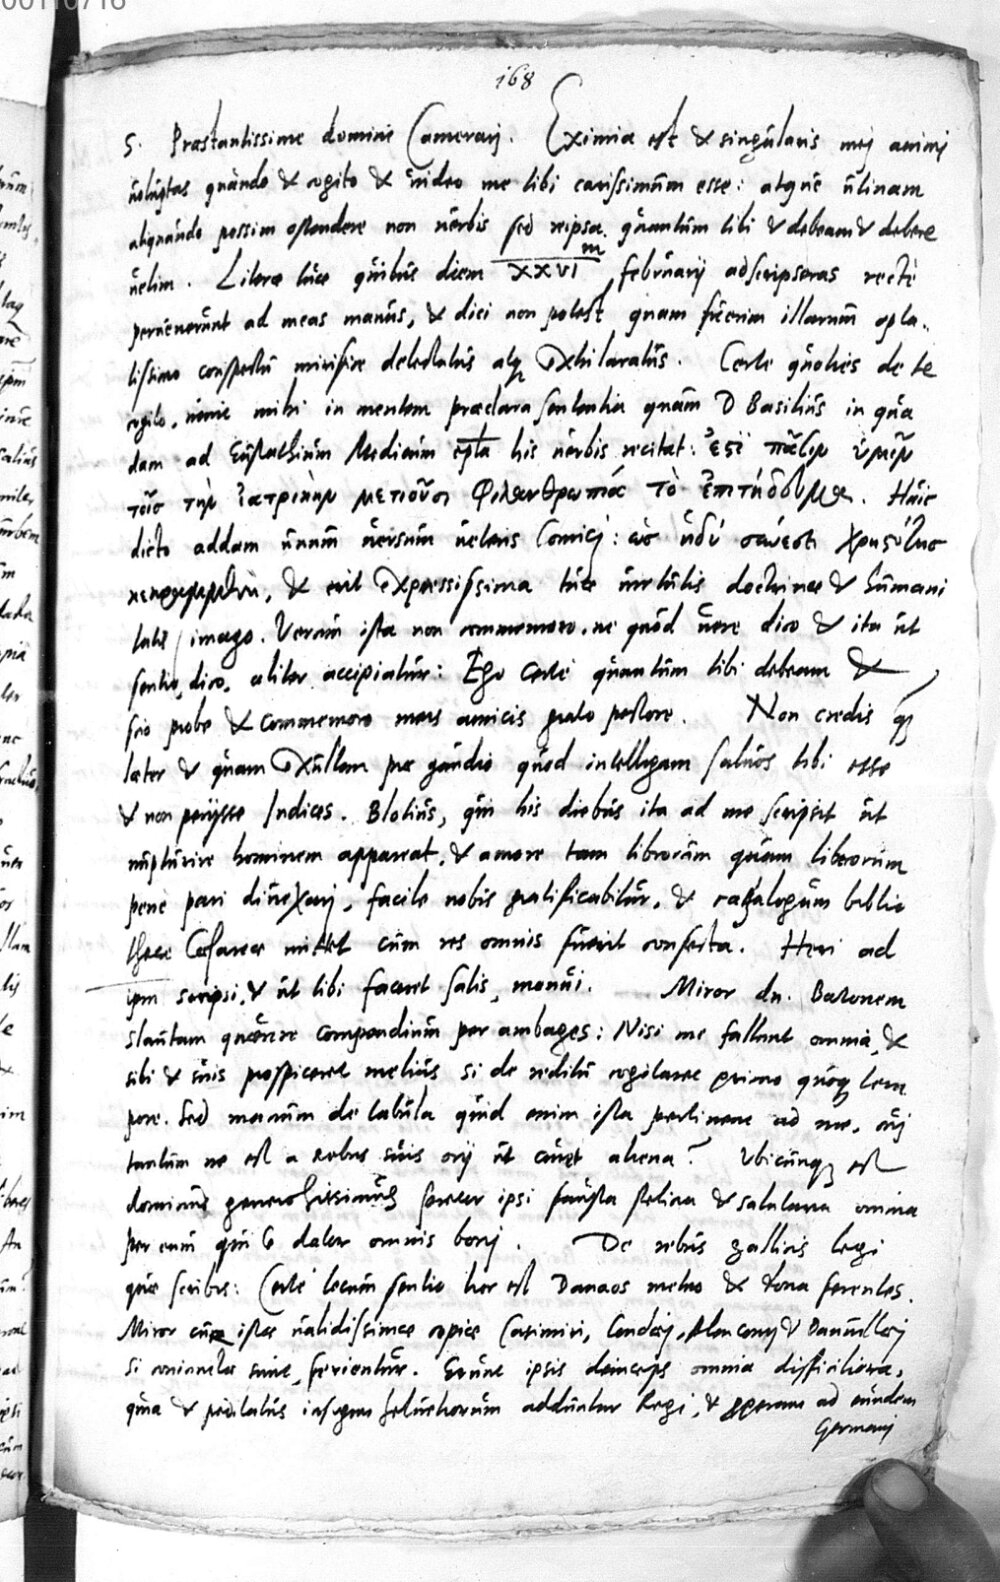 00110716
168
S. Præstantissime domine Camerarj. Eximia est & singularis mej animj
uoluptas quando & cogito & uideo me tibi carissimum esse: atque utinam
aliquando possim ostendere non uerbis sed reipsa quantum tibi & debeam & debere
uelim. Literæ tuæ quibus diem XXVI m februarij adscripseras recte
peruenerunt ad meas manus, & dici non potest quam fuerim illarum opta-
tissimo conspectu mirifice delectatus atq exhilaratus. Certe quoties de te
cogito, uenit mihi in mentem præclara sententia quam D Basilius in qua
dam ad Eustathium Medicum epla his uerbis recitat: ἐςὶ πᾶσιν ὑμῖν
τοῖσ τὴν ἰατρικὴν μετιοῦσι φιλανθρωπία τὸ ἐπιτήδευμα. Huic
dicto addam unum uersum ueteris Comicj: ὡσ ἡδὺ συνέσει χρηςότησ
κεκραμένη, & erit expressissima tuæ uirtutis doctrinæ & humani
tatis imago. Verum ista non commemoro, ne quod uere dico & ita ut
sentio dico, aliter accipiatur: Ego certe quantum tibi debeam &
scio probe & commemoro meis amicis grato pectore. Non credis q
læter & quam exultem præ gaudio quod intellegam saluos tibi esse
& non perijsse Indices. Blotius, qui his diebus ita ad me scripsit ut
nupturire hominem appareat, & amore tam librorum quam liberorum
pene pari, facile nobis gratificabitur, & cathalogum biblio
thecæ Cæsareæ mittet cum res omnis fuerit confecta. Heri ad
ipm scripsi, & ut tibi faceret satis, monui. Miror dn. Baronem
quærere compendium per ambages: Nisi me fallunt omnia, &
sibi & suis prospiceret melius si de reditu cogitaret primo quoq tem
pore. Sed manum de tabula quid enim ista pertinent ad me, cuj
tantum ne est a rebus suis ocij ut curet aliena? Vbicunq est
dominus generosissimus precor ipsi fausta felicia & salutaria omnia
per eum qui ē dator omnis bonj. De rebus gallicis legi
quæ scribis: Certe tecum sentio hoc est Danaos metuo & dona ferentes.
Miror cur istæ ualidissimæ copiæ Casimiri, Condæj, Alenconij & Danuillæj
si coniunctæ sunt, ferientur. Erunt ipsis deinceps omnia difficiliora,
quia & peditatus insignis heluetiorum adduntur Regi, & properant ad eundem
Germanj